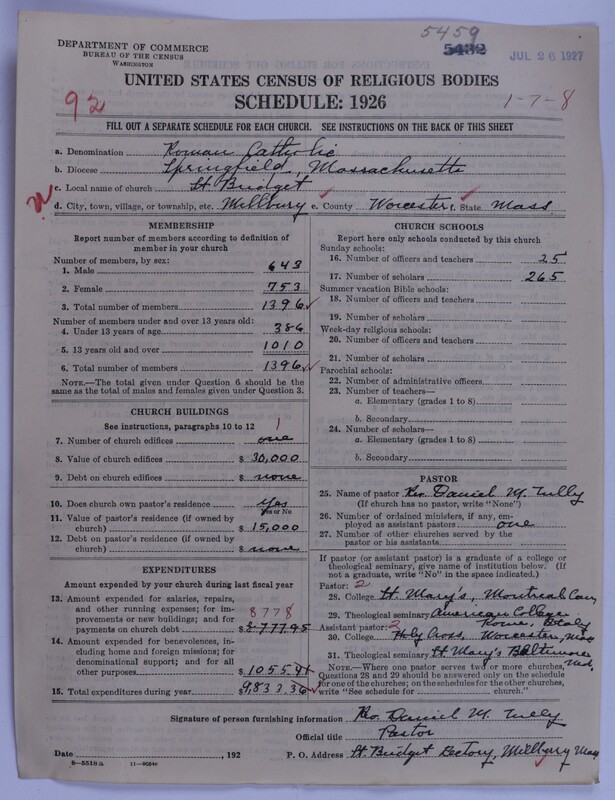 5459
DEPARTMENT OF COMMERCE
BUREAU OF THE CENSUS
WASHINGTON
5432
JUL 26 1927
UNITED STATES CENSUS OF RELIGIOUS BODIES
SCHEDULE: 1926
92
1-7-8
FILL OUT A SEPARATE SCHEDULE FOR EACH CHURCH. SEE INSTRUCTIONS ON THE BACK OF THIS SHEET
a. Denomination Roman Catholic
b. Diocese Springfield, Massachusetts
c. Local name of church St Bridget
d. City, town, village, or township, etc. Millbury e. County Worcester f. State Mass.
MEMBERSHIP
Report number of members according to definition of
member in your church
Number of members, by sex:
1. Male 643
2. Female 753
3. Total number of members 1396
Number of members under and over 13 years old:
4. Under 13 years of age 386
5. 13 years old and over 1010
6. Total number of members 1396
NOTE.—The total given under Question 6 should be
the same as the total of males and females given under Question 3.
CHURCH BUILDINGS
See instructions, paragraphs 10 to 12
1
7. Number of church edifices one
8. Value of church edifices $ 30,000
9. Debt on church edifices $ none
10. Does church own pastor's residence Yes
Yes or No
11. Value of pastor's residence (if owned by
church) $ 15,000
12. Debt on pastor's residence (if owned by
church) $ none
EXPENDITURES
Amount expended by your church during last fiscal year
13. Amount expended for salaries, repairs,
and other running expenses; for im-
provements or new buildings; and for
payments on church debt $ 8777.95
8778
14. Amount expended for benevolences, in-
cluding home and foreign missions; for
denominational support; and for all
other purposes $ 1055.41
15. Total expenditures during year $ 9,833.36
CHURCH SCHOOLS
Report here only schools conducted by this church
Sunday schools:
16. Number of officers and teachers 25
17. Number of scholars 265
Summer vacation Bible schools:
18. Number of officers and teachers
19. Number of scholars
Week-day religious schools:
20. Number of officers and teachers
21. Number of scholars
Parochial schools:
22. Number of administrative officers
23. Number of teachers—
a. Elementary (grades 1 to 8)
b. Secondary
24. Number of scholars—
a. Elementary (grades 1 to 8)
b. Secondary
PASTOR
25. Name of pastor Rev. Daniel M. Tully
(If church has no pastor, write "None")
26. Number of ordained ministers, if any, em-
ployed as assistant pastors one
27. Number of other churches served by the
pastor or his assistants
If pastor (or assistant pastor) is a graduate of a college or
theological seminary, give name of institution below. (If
not a graduate, write "No" in the space indicated.)
Pastor: 2
28. College St Mary's, Montreal Can
29. Theological seminary American College
Rome, Italy
Assistant pastor: 2
30. College Holy Cross, Worcester, Mass
31. Theological seminary St Mary's Baltimore
Md.
NOTE.—Where one pastor serves two or more churches,
Questions 28 and 29 should be answered only on the schedule
for one of the churches; on the schedules for the other churches,
write "See schedule for church."
Signature of person furnishing information Rev. Daniel M. Tully
Official title Pastor
Date , 192 P. O. Address St. Bridget Rectory, Millbury Mass